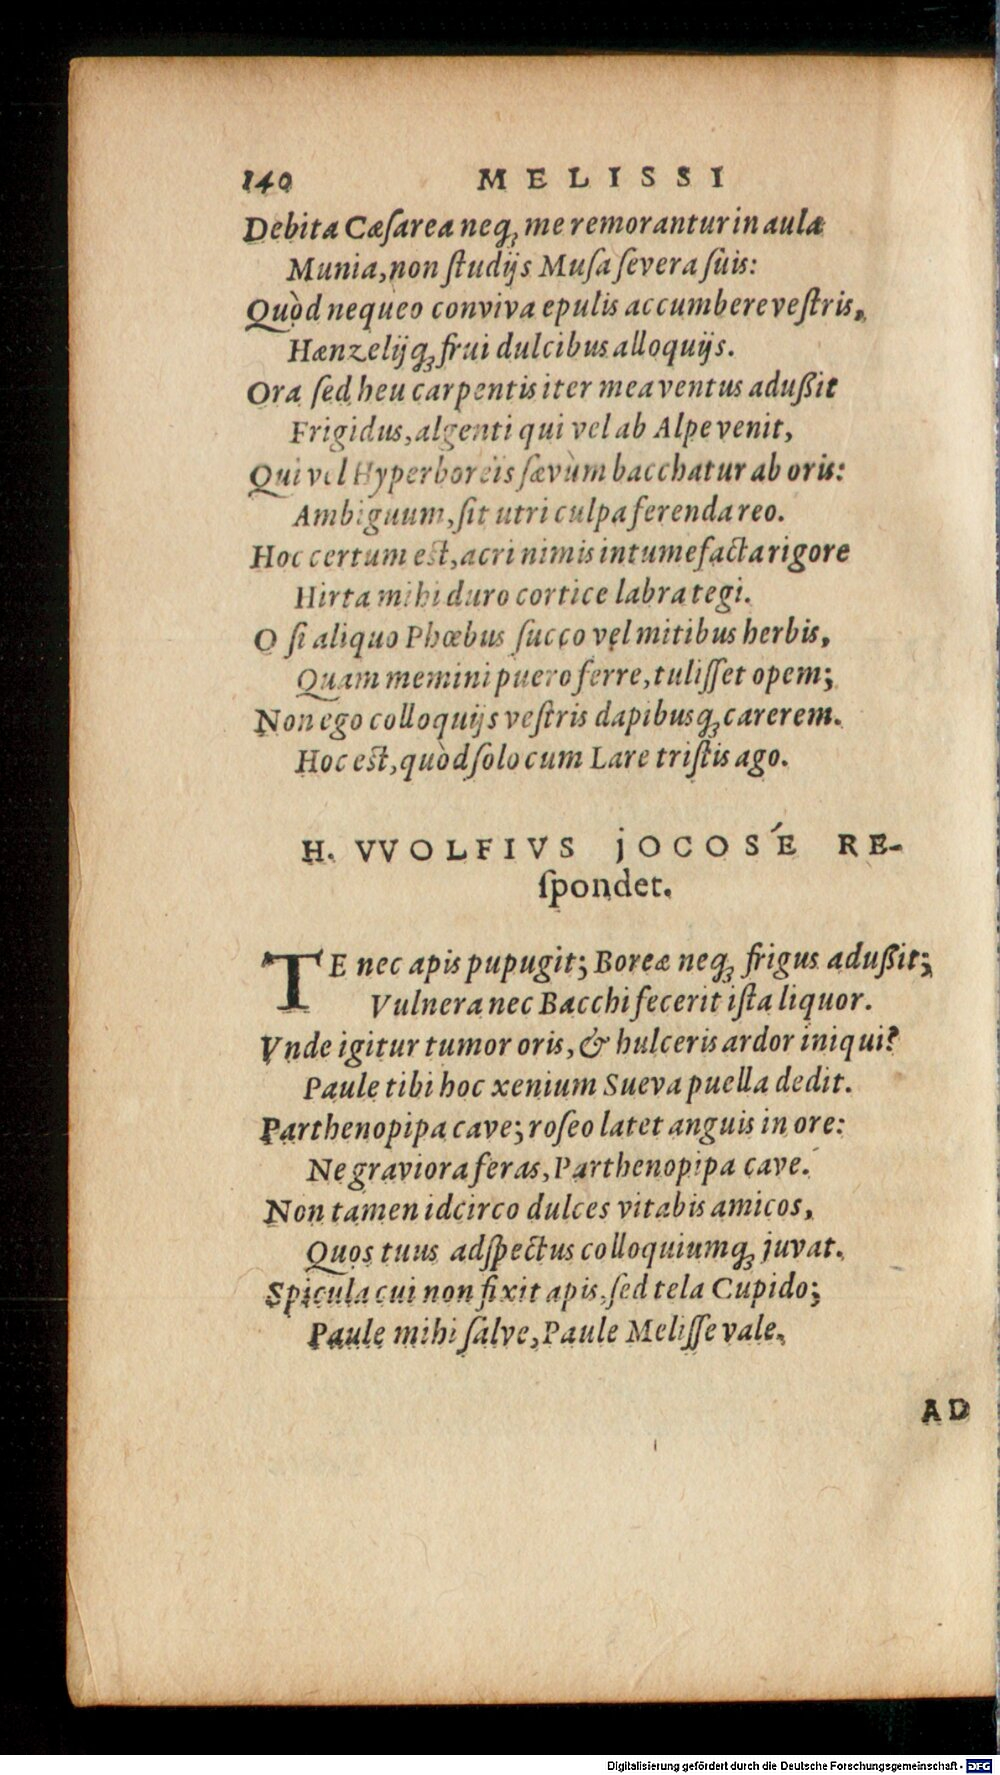 140 MELISSI
Debita Cæſarea neq; me remorantur in aula
Munia, non ſtudijs Muſa ſevera ſuis:
Quòd nequeo conviva epulis accumbere veſtris,
Hænzelijq; frui dulcibus alloquijs.
Ora ſed heu carpentis iter mea ventus adußit
Frigidus, algenti qui vel ab Alpe venit,
Qui vel Hyperboreis ſævùm bacchatur ab oris:
Ambiguum, ſit utri culpa ferenda reo.
Hoc certum est, acri nimis intumefacta rigore
Hirta mihi duro cortice labra tegi.
O ſi aliquo Phœbus ſucco vel mitibus herbis,
Quam memini puero ferre, tuliſſet opem;
Non ego colloquijs veſtris dapibusq; carerem.
Hoc est, quòd ſolo cum Lare triſtis ago.
H. VVOLFIVS JOCOSÉ RE-
ſpondet.
TE nec apis pupugit; Boreæ neq; frigus adußit;
Vulnera nec Bacchi fecerit iſta liquor.
Vnde igitur tumor oris, & hulceris ardor iniqui?
Paule tibi hoc xenium Sueva puella dedit.
Parthenopipa cave; roſeo latet anguis in ore:
Ne graviora feras, Parthenopipa cave.
Non tamen idcirco dulces vitabis amicos,
Quos tuus adſpectus colloquiumq; juvat.
Spicula cui non fixit apis, ſed tela Cupido;
Paule mihi ſalve, Paule Meliſſe vale.
AD
Digitalisierung gefördert durch die Deutsche Forschungsgemeinschaft - DFG